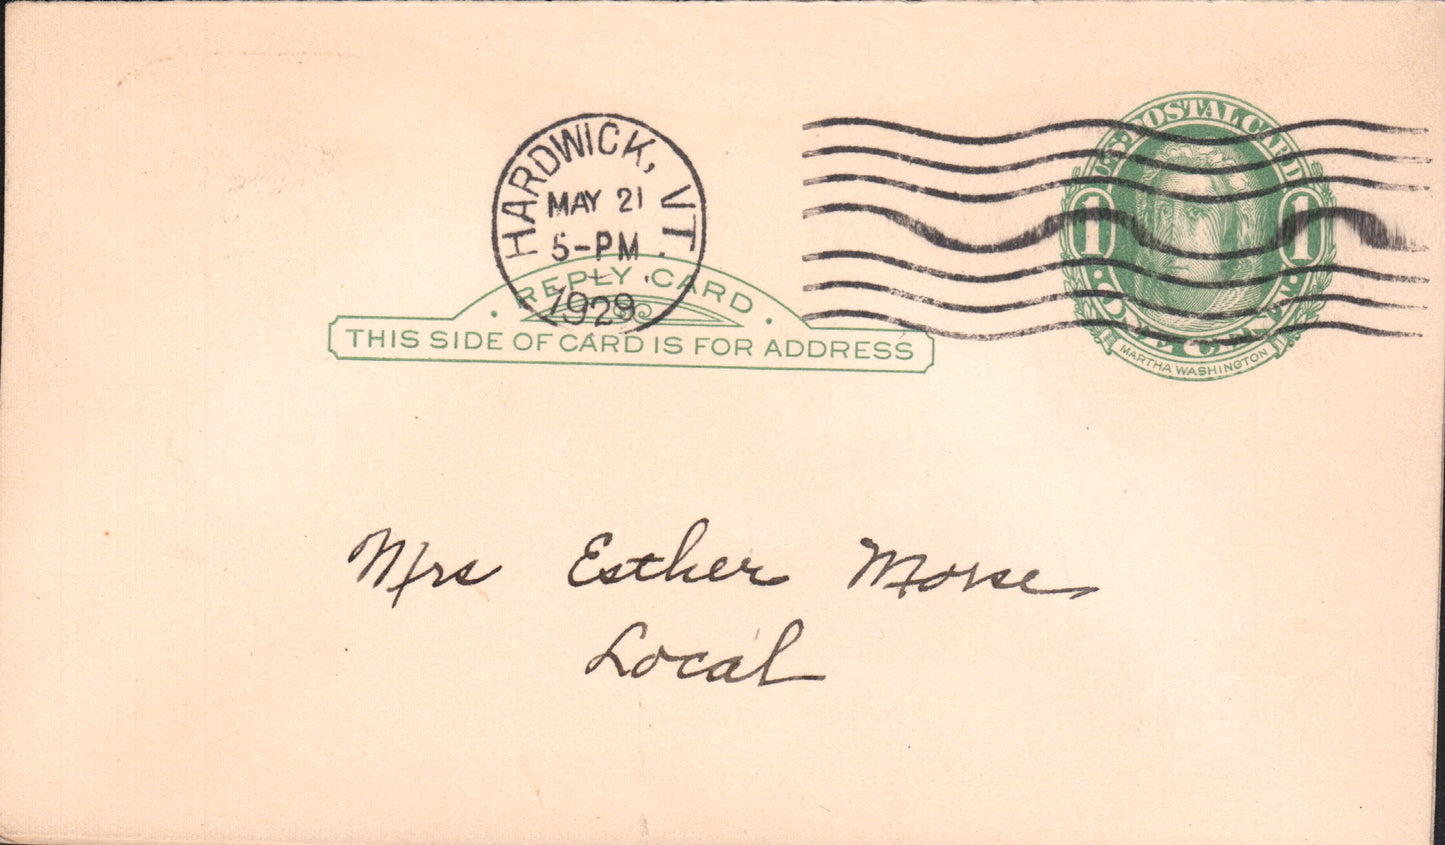 HARDWICK, VT.
MAY 21
5-PM
1929
U.S. POSTAL CARD
1 1
MARTHA WASHINGTON
REPLY CARD
THIS SIDE OF CARD IS FOR ADDRESS
Mrs Esther Morse
Local